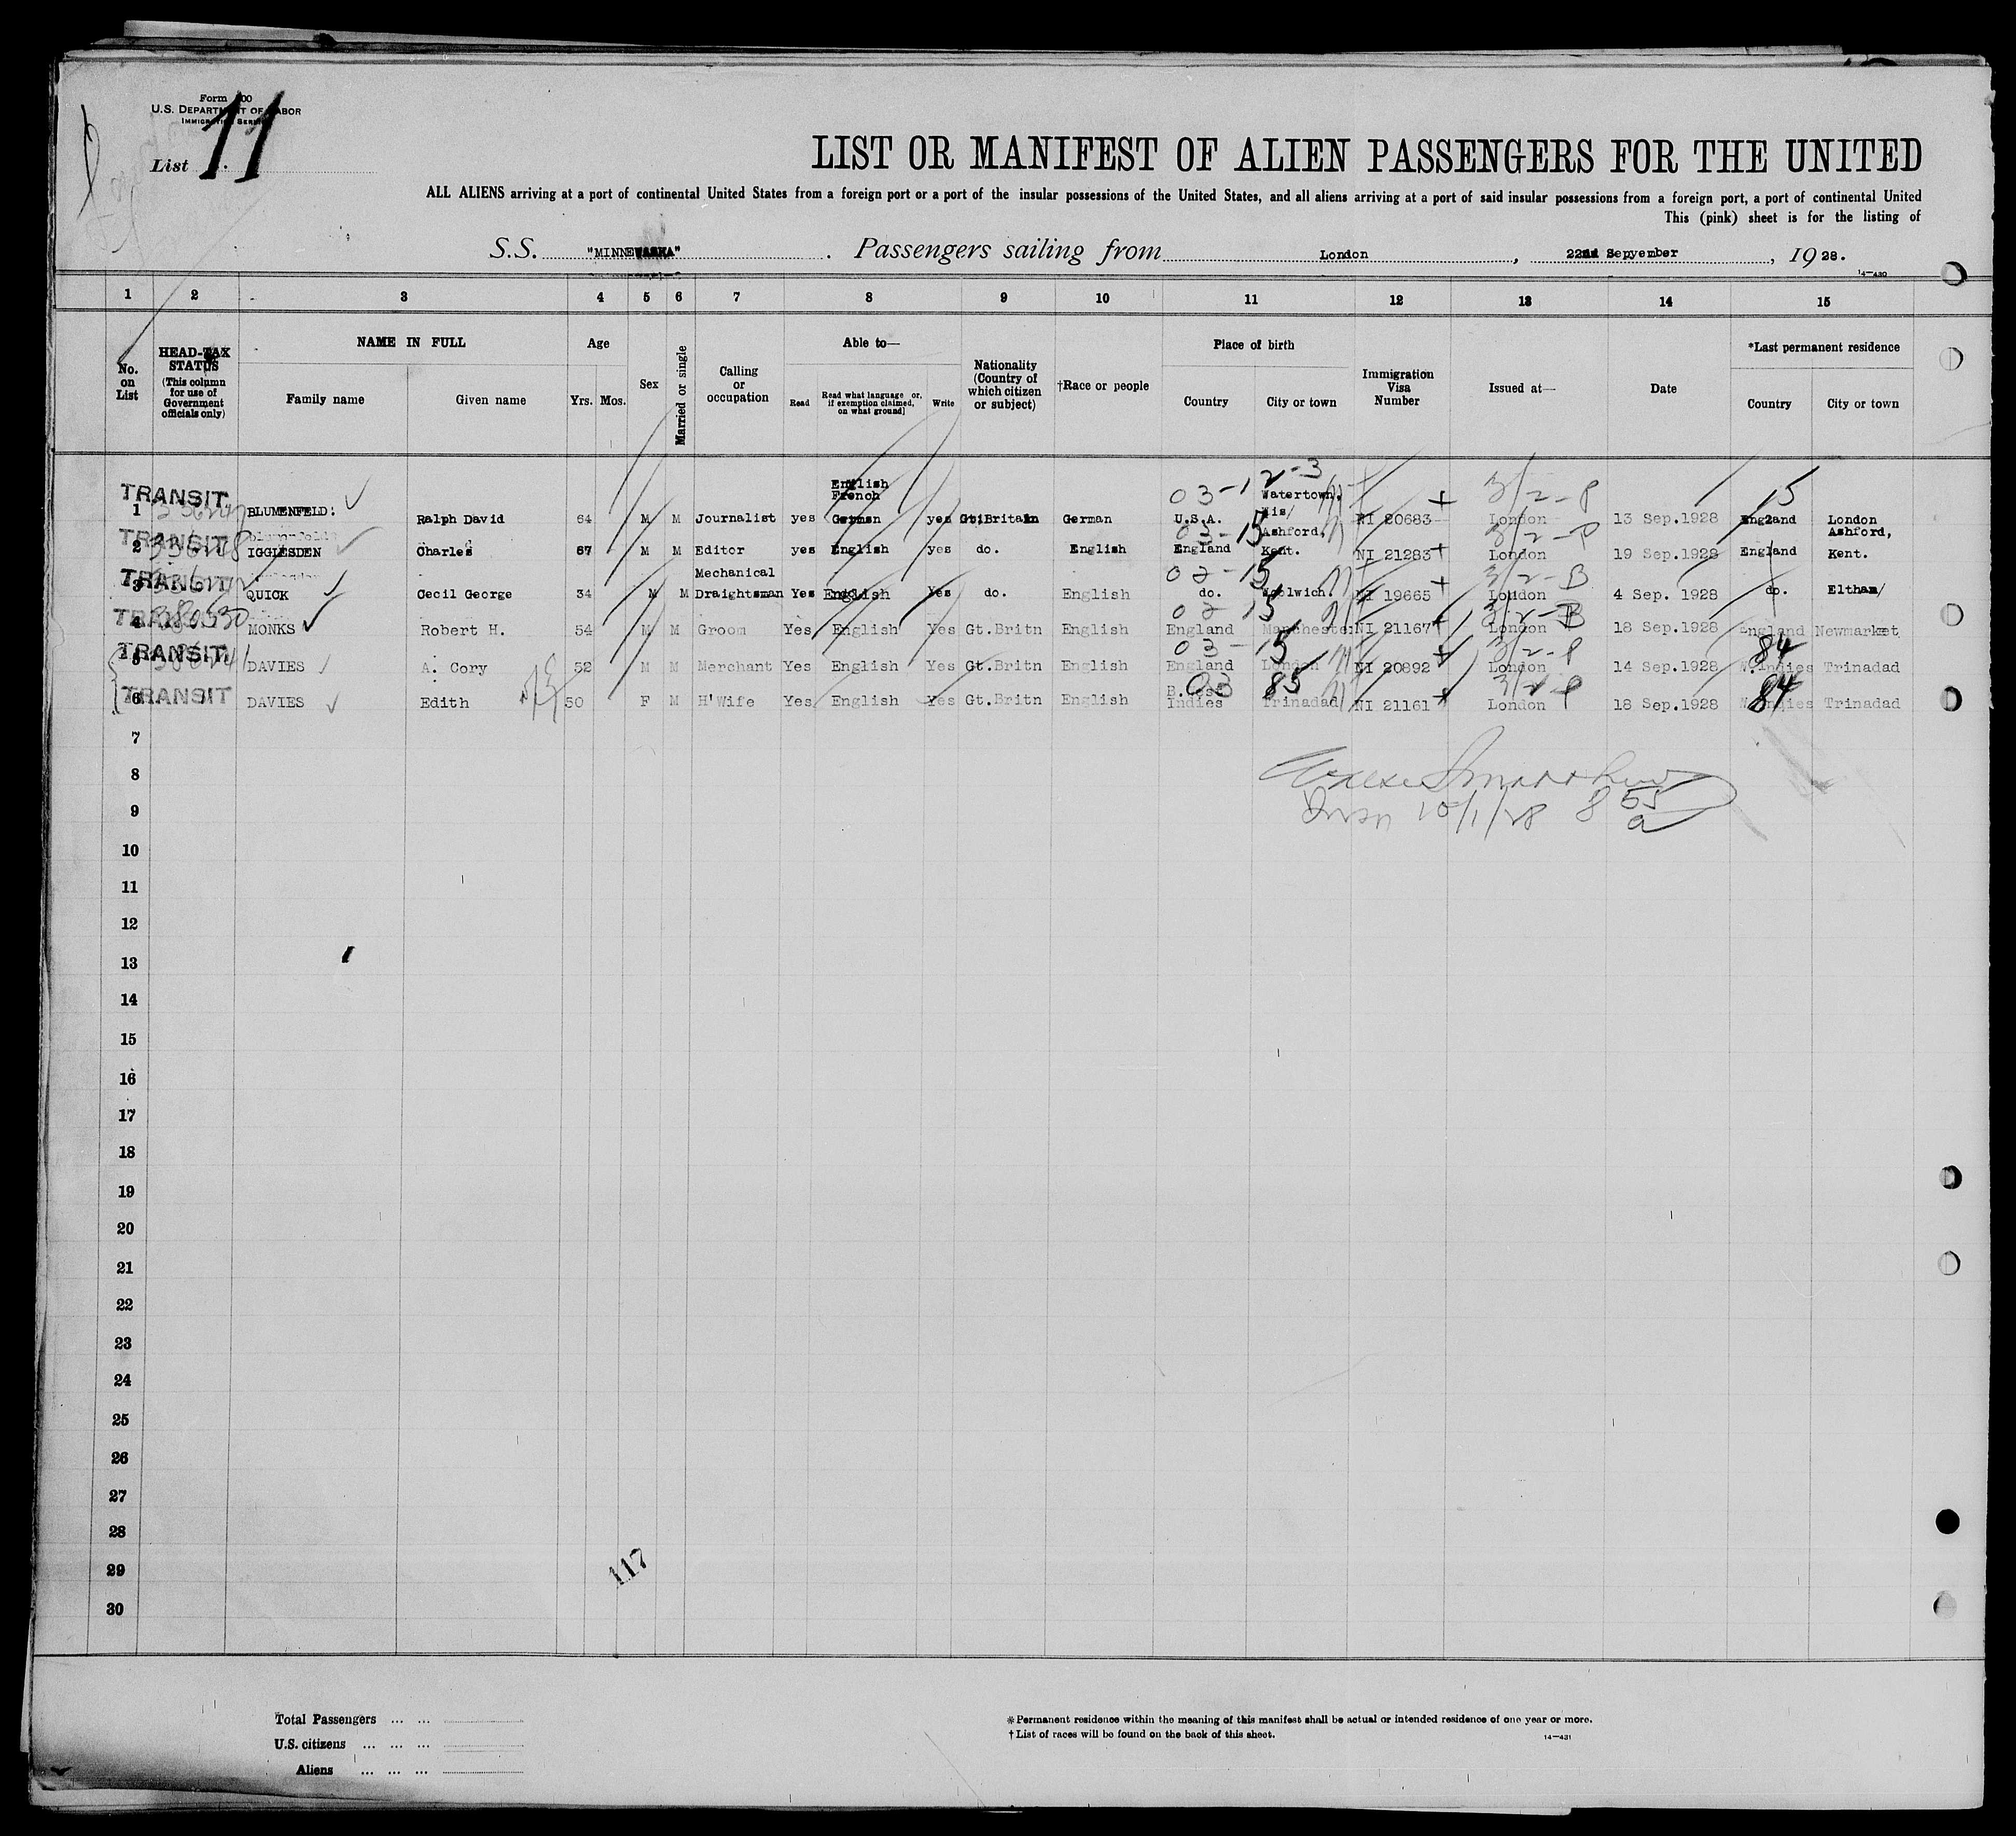 Form 500
U.S. DEPARTMENT OF LABOR
IMMIGRATION SERVICE
List 11
LIST OR MANIFEST OF ALIEN PASSENGERS FOR THE UNITED
ALL ALIENS arriving at a port of continental United States from a foreign port or a port of the insular possessions of the United States, and all aliens arriving at a port of said insular possessions from a foreign port, a port of continental United
This (pink) sheet is for the listing of
S.S. "MINNEWASKA". Passengers sailing from London, 22nd Sepyember, 19 28.
14-430
1 2 3 4 5 6 7 8 9 10 11 12 13 14 15
No. on List
HEAD-TAX STATUS
(This column for use of Government officials only)
NAME IN FULL
Family name Given name
Age
Yrs. Mos.
Sex
Married or single
Calling or occupation
Able to—
Read Read what language or, if exemption claimed, on what ground] Write
Nationality (Country of which citizen or subject)
†Race or people
Place of birth
Country City or town
Immigration Visa Number
Issued at—
Date
*Last permanent residence
Country City or town
TRANSIT. 1 BLUMENFELD: Ralph David 64 M M Journalist yes English French German yes Gt.Britain German 03-12-3 U.S.A. Watertown. Wis/ NI 20683 3/2-P London 13 Sep.1928 15 England London
TRANSIT. 2 IGGLESDEN Charles 67 M M Editor yes English yes do. English 03-15 England Ashford. Kent. NI 21283 3/2-P London 19 Sep.1928 England Ashford, Kent.
TRANSIT. 3 QUICK Cecil George 34 M M Mechanical Draightsman Yes English Yes do. English 02-15 do. Woolwich. NI 19665 3/2-B London 4 Sep. 1928 do. Eltham/
TRANSIT. 4 MONKS Robert H. 54 M M Groom Yes English Yes Gt.Britn English 02 15 England Manchester NI 21167 3/2-B London 18 Sep.1928 England Newmarket
TRANSIT. 5 DAVIES A. Cory 52 M M Merchant Yes English Yes Gt.Britn English 03-15 England London NI 20892 3/2-P London 14 Sep.1928 84 W.Indies Trinadad
TRANSIT 6 DAVIES Edith 50 F M H'Wife Yes English Yes Gt.Britn English 03 85 B.West Indies Trinadad NI 21161 3/2-P London 18 Sep.1928 84 W.Indies Trinadad
7
8
10/1/28 8 55 a
9
10
11
12
13
14
15
16
17
18
19
20
21
22
23
24
25
26
27
28
29
117
30
Total Passengers ... ...
U.S. citizens ... ... ...
Aliens ... ... ...
*Permanent residence within the meaning of this manifest shall be actual or intended residence of one year or more.
†List of races will be found on the back of this sheet.
14-431